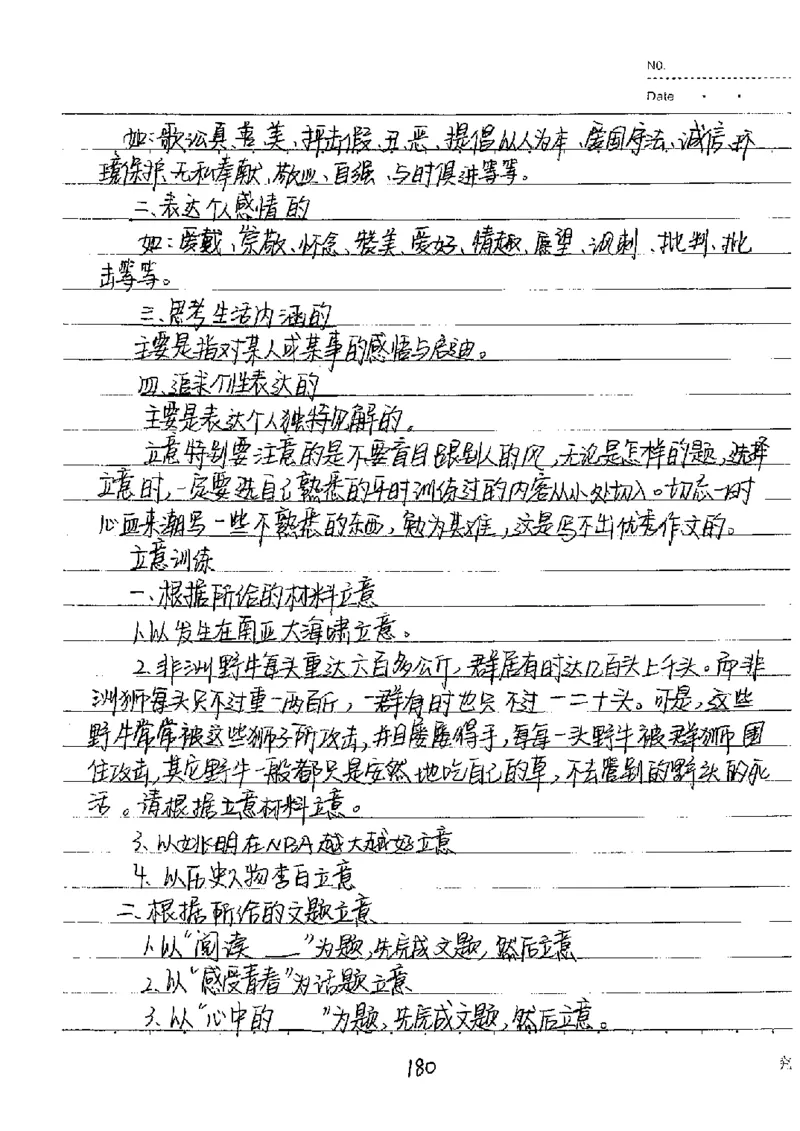 NO.
Date
如:歌讼真、善、美、抨击假、丑、恶、提倡以人为本、爱国守法、诚信、环
境保护、无私奉献、敬业、自强、与时俱进等等。
二、表达个人感情的
如:爱戴、崇敬、怀念、赞美、爱好、情趣、展望、讽刺、批判、批
击等等。
三、思考生活内涵的
主要是指对某人或某事的感悟与启迪。
四、追求个性表达的
主要是表达个人独特见解的。
立意特别要注意的是不要盲目跟别人的风,无论是怎样的题,选择
立意时,一定要选自己熟悉的平时训练过的内容从小处切入。切忌一时
心血来潮写一些不熟悉的东西,勉为其难,这是写不出优秀作文的。
立意训练
一、根据所给的材料立意
1.以发生在南亚大海啸立意。
2.非洲野牛每头重达六百多公斤,群居有时达几百头上千头。而非
洲狮每头只不过重一两百斤,一群有时也只不过一二十头。可是,这些
野牛常常被这些狮子所攻击,并且屡屡得手,每每一头野牛被群狮围
住攻击,其它野牛一般都只是安然地吃自己的草,不去管别的野头的死
活。请根据立意材料立意。
3.以姚明在NBA越大越好立意
4.以历史人物李白立意
二、根据所给的文题立意
1.以“阅读___”为题,先完成文题,然后立意
2.以“感受青春”为话题立意
3.以“心中的___”为题,先完成文题,然后立意。
180